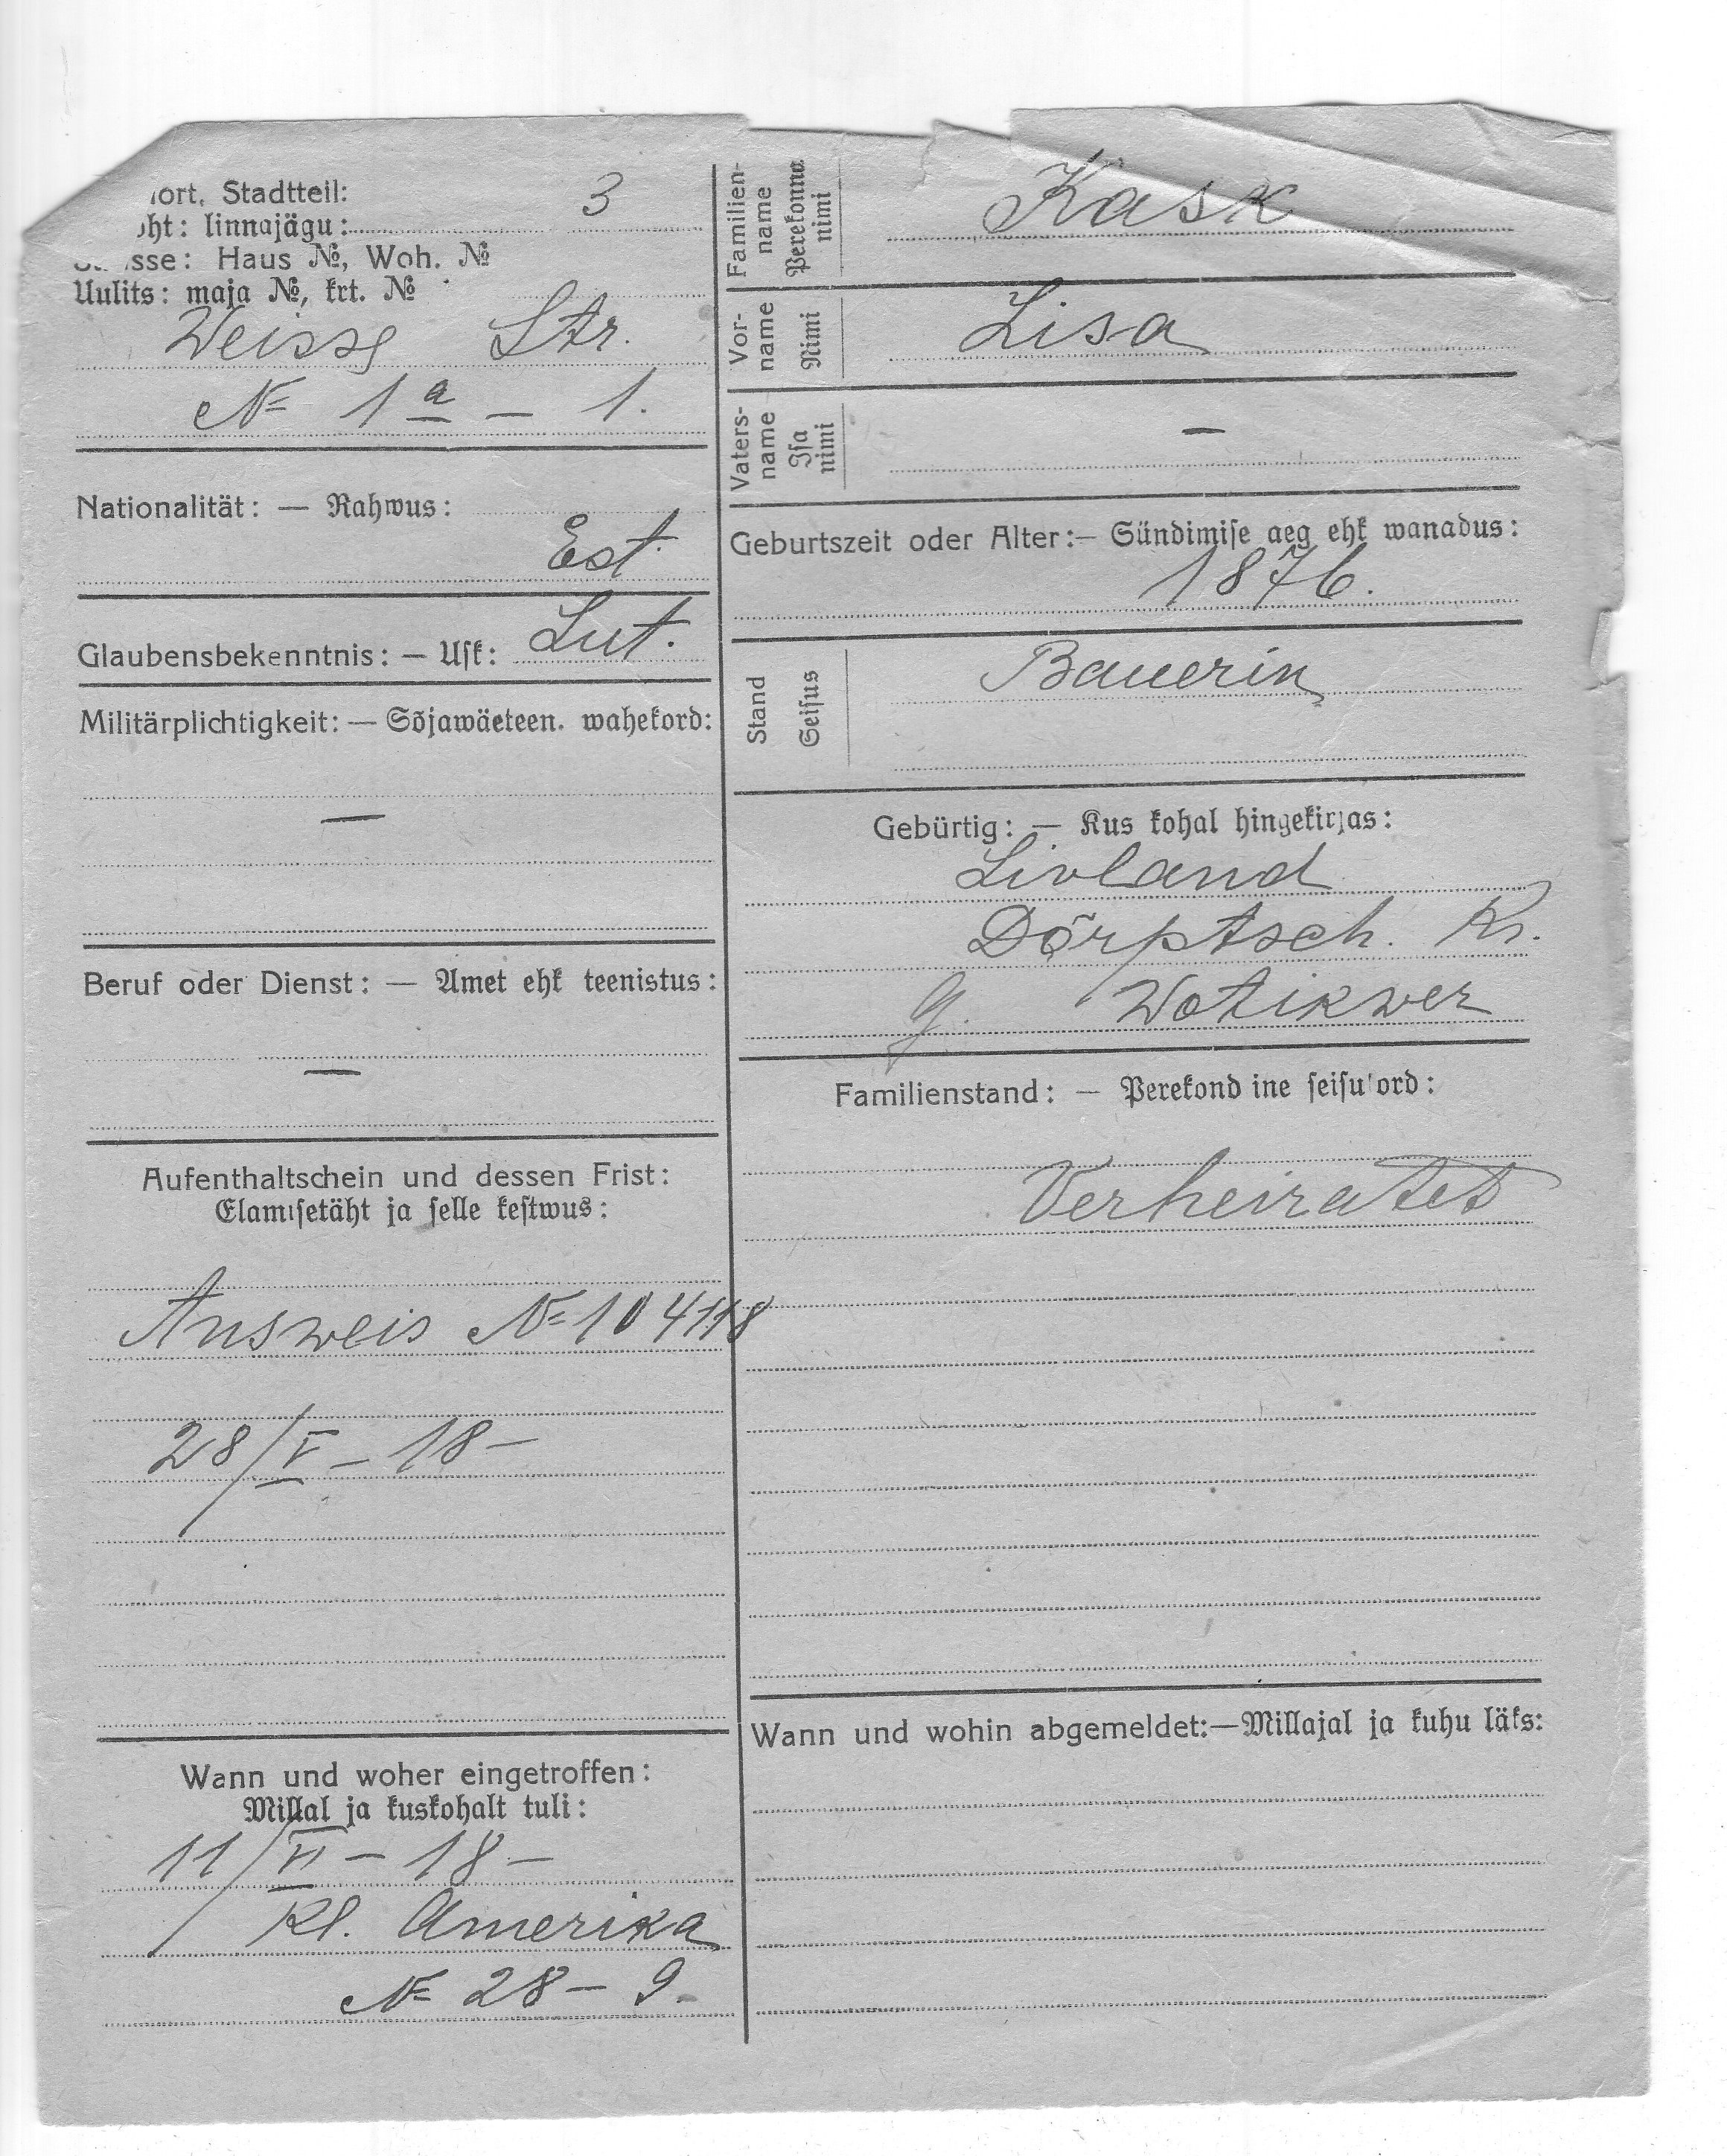 ort, Stadtteil: 3
ht: linnajägu:
sse: Haus №, Woh. №
Uulits: maja №, krt. №
Weisse Str.
№ 1a – 1.
Nationalität: — Rahwus:
Est.
Glaubensbekenntnis: — Usk: Lut.
Militärplichtigkeit: — Sõjawäeteen. wahekord:
—
Beruf oder Dienst: — Amet ehk teenistus:
—
Aufenthaltschein und dessen Frist:
Elamisetäht ja selle kestwus:
Ausweis № 104118
28/V – 18 –
Wann und woher eingetroffen:
Millal ja kuskohalt tuli:
11/VI – 18 –
Kl. Amerika
№ 28 – 9.
Familien-
name
Perekonna
nimi
Kask
Vor-
name
Nimi
Lisa
Vaters-
name
Isa
nimi
–
Geburtszeit oder Alter:— Sündimise aeg ehk wanadus:
1876.
Stand
Seisus
Bauerin
Gebürtig: — Kus kohal hingekirjas:
Livland
Dörptsch. Kr.
G. Wotikwer
Familienstand: — Perekond ine seisu ord:
Verheiratet
Wann und wohin abgemeldet:—Millajal ja kuhu läks: